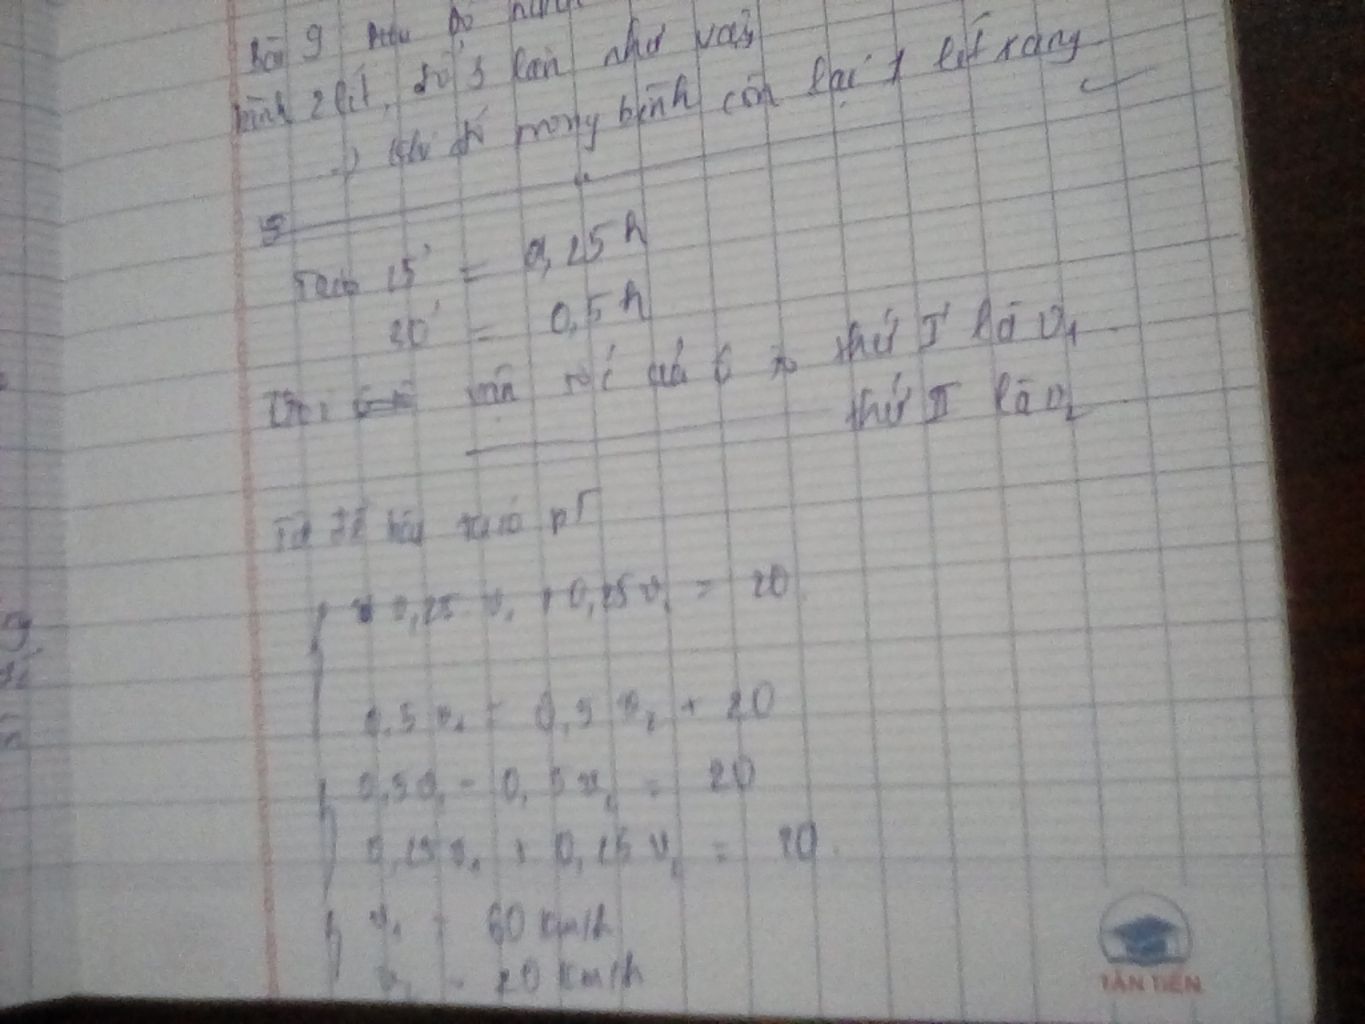 bình 2 lít, đổ 3 lần như vậy
=) khi đó trong bình còn lại 1 lít xăng
5
15' = 0,25 h
30' = 0,5 h
vận tốc của ô tô thứ I là v₁
thứ II là v₂
Từ đề bài ta có pT
0,25 v₁ + 0,25 v₂ = 20
0,5 v₁ = 0,5 v₂ + 20
0,5 v₁ - 0,5 v₂ = 20
0,25 v₁ + 0,25 v₂ = 20
v₁ = 60 km/h
v₂ = 20 km/h
TÂN TIẾN